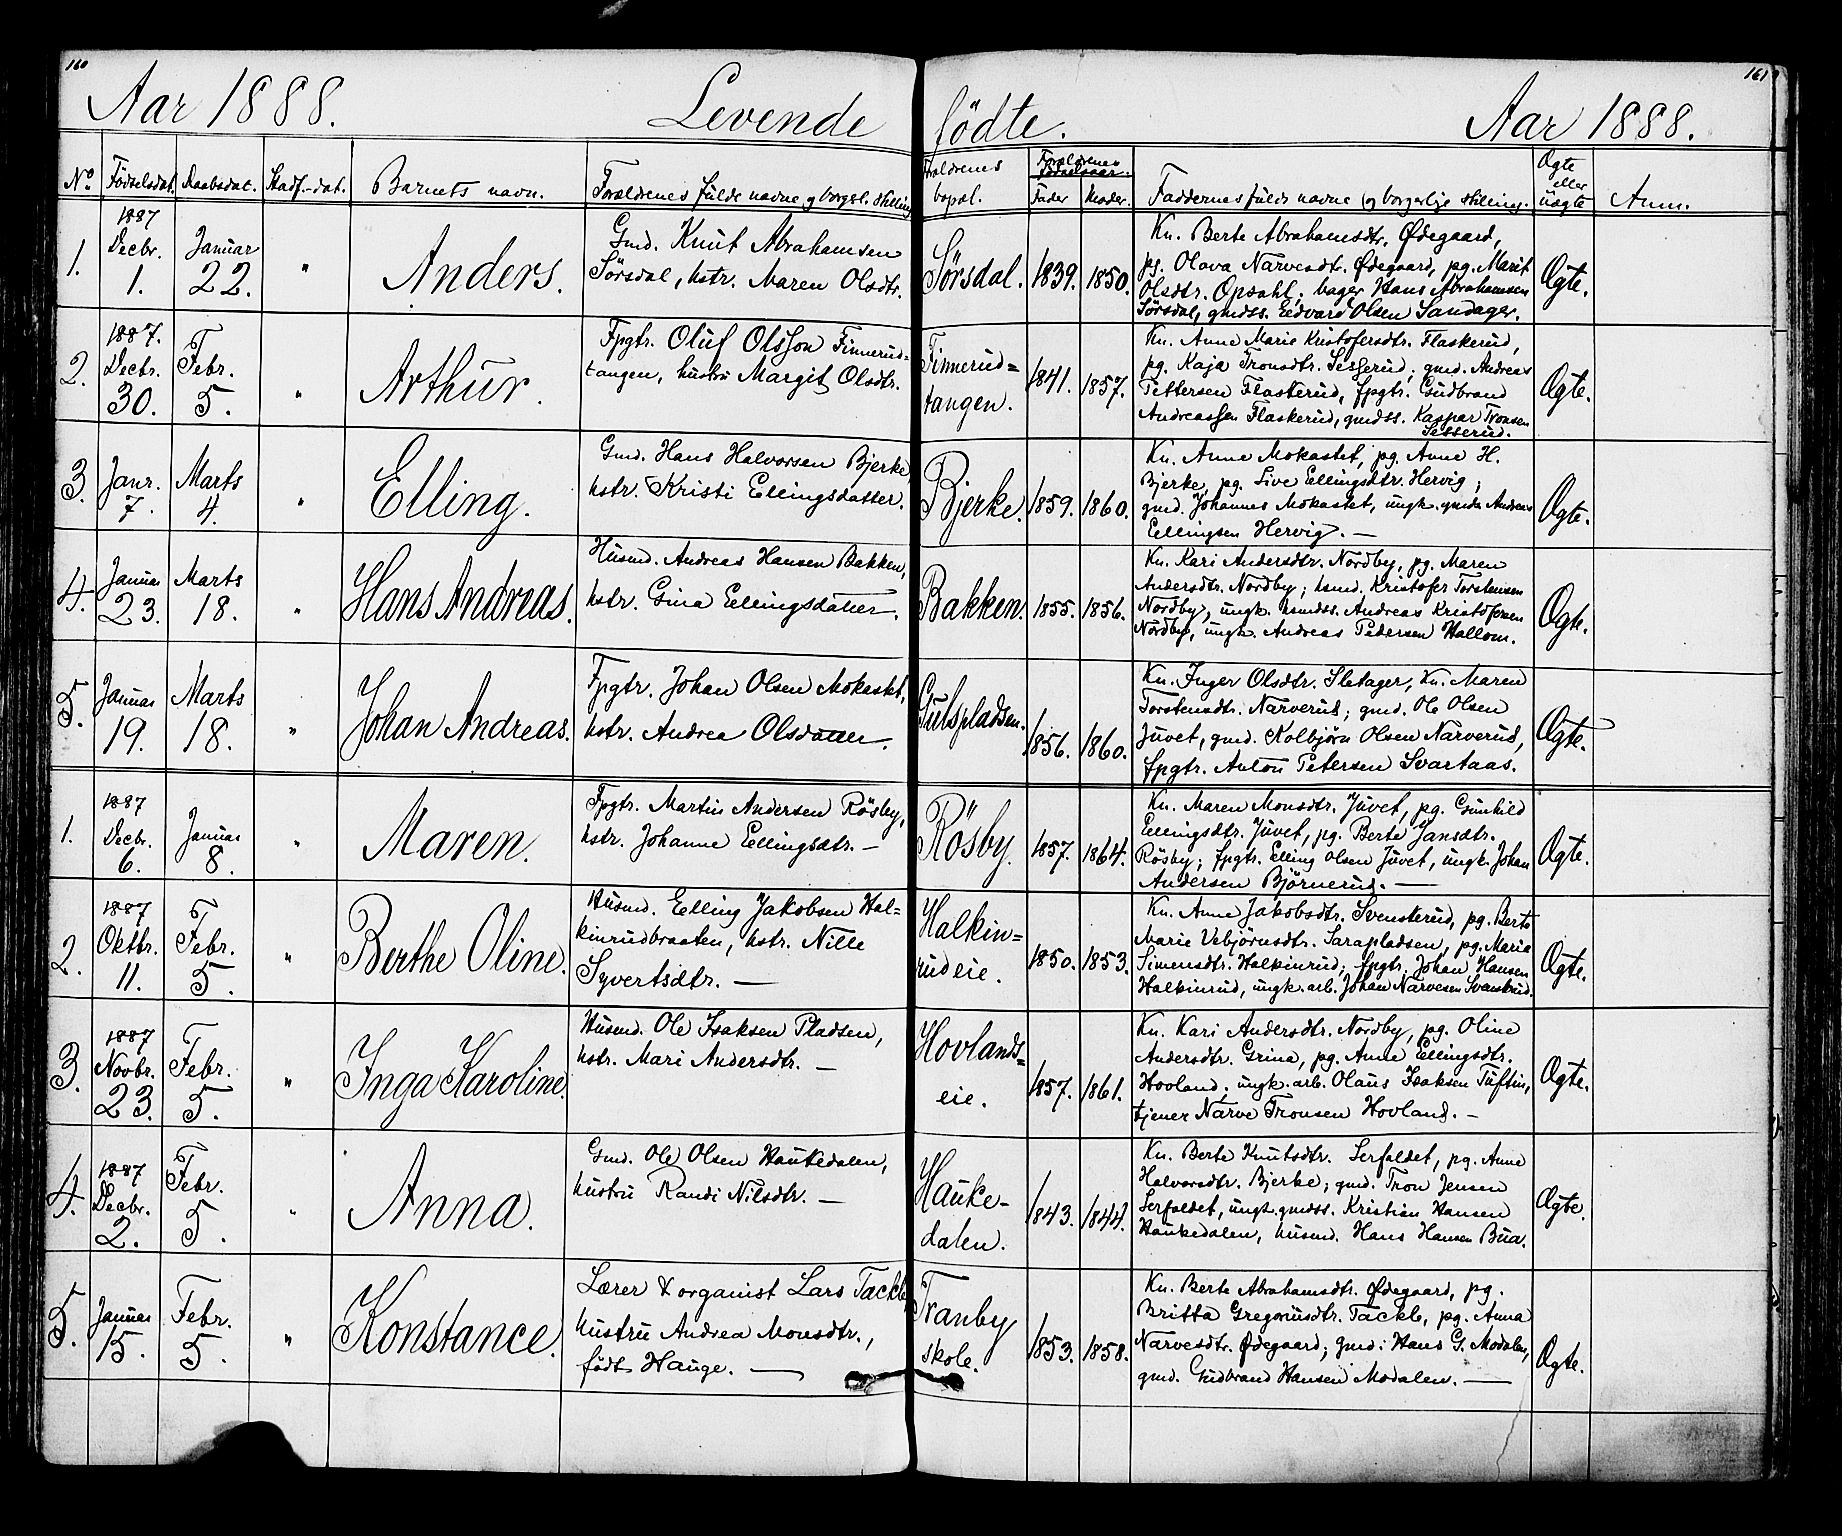 160
161
Aar 1888. Levende födte. Aar 1888.
No. Födselsdat. Daabsdat. Stadf.-dat. Barnets navn. Forældrenes fulde navne og borgel. stilling Forældrenes bopæl. Forældrenes fødselsaar. Fader Moder. Faddernes fulde navne og borgerlige stilling. Ægte eller uægte Anm.
1. 1887 Decbr. 1. Januar 22. " Anders.
Gmd. Knut Abrahamsen
Sörsdal, hstr. Maren Olsdtr.
Sörsdal. 1839. 1850.
Kn. Berte Abrahamsdtr. Ødegaard,
pg. Olava Narvesdtr. Ødegaard, pg. Marit
Olsdtr. Opsahl; bager Hans Abrahamsen
Sörsdal, gmdss. Edvard Olsen Sandager.
Ægte.
2. 1887. Decbr. 30. Febr. 5. " Arthur.
Fpgtr. Oluf Olsson Finnerud=
tangen, hustru Margit Olsdtr.
Finnerud=
tangen. 1841. 1857.
Kn. Anne Marie Kristofersdtr. Flaskerud,
pg. Kaja Tronsdtr. Sesserud; gmd. Andreas
Pettersen Flaskerud, fpgtr. Gudbrand
Andreassen Flaskerud, gmdss. Kaspar Tronsen
Sesserud.
Ægte.
3. Janr. 7. Marts 4. " Elling.
Gmd. Hans Halvorsen Bjerke
hstr. Kristi Ellingsdatter.
Bjerke. 1859. 1860.
Kn. Anne Mokastet, pg. Anne H.
Bjerke, pg. Live Ellingsdtr. Hervig;
gmd. Johannes Mokastet, ungk. gmdss Andreas
Ellingsen Hervig. —
Ægte.
4. Januar 23. Marts 18. " Hans Andreas.
Husmd. Andreas Hansen Bakken,
hstr. Gina Ellingsdatter.
Bakken. 1855. 1856.
Kn. Kari Andersdtr. Nordby, pg. Maren
Andersdtr. Nordby; hsmd. Kristofer Torstensen
Nordby, ungk. hsmdss. Andreas Kristofersen
Nordby, ungk. Andreas Pedersen Hallom.
Ægte.
5. Januar 19. Marts 18. " Johan Andreas.
Fpgtr. Johan Olsen Mokastet,
hstr. Andrea Olsdatter.
Gulspladsen. 1856. 1860.
Kn. Inger Olsdtr. Sletager, Kn. Maren
Torstensdtr. Narverud; gmd. Ole Olsen
Juvet, gmd. Kolbjørn Olsen Narverud,
fpgtr. Anton Petersen Svartaas.
Ægte.
1. 1887 Decbr. 6. Januar 8. " Maren.
Fpgtr. Martin Andersen Rösby,
hstr. Johanne Ellingsdtr. —
Rösby. 1857. 1864.
Kn. Maren Monsdtr. Juvet, pg. Gunhild
Ellingsdtr. Juvet, pg. Berte Jansdtr.
Rösby; fpgtr. Elling Olsen Juvet, ungk. Johan
Andersen Björnerud. —
Ægte.
2. 1887 Oktbr. 11. Febr. 5. " Berthe Oline.
Husmd. Elling Jakobsen Hal=
kinrudbraaten, hstr. Nille
Syvertsdtr. —
Halkin=
rudeie. 1850. 1853.
Kn. Anne Jakobsdtr. Svensterud, pg. Berte
Marie Vebjörnsdtr. Sarapladsen, pg. Maria
Simensdtr. Halkinrud; fpgtr. Johan Hansen
Halkinrud, ungk. arb. Johan Narvesen Svensrud.
Ægte.
3. 1887 Novbr. 23. Febr. 5. " Inga Karoline.
Husmd. Ole Isaksen Pladsen,
hstr. Mari Andersdtr. —
Hovlands=
eie. 1857. 1861.
Kn. Kari Andersdtr. Nordby, pg. Oline
Andersdtr. Grina, pg. Anne Ellingsdtr.
Hovland; ungk. arb. Olaus Isaksen Tuftin,
tjener Narve Tronsen Hovland. —
Ægte.
4. 1887 Decbr. 2. Febr. 5. " Anna.
Gmd. Ole Olsen Haukedalen,
hustru Randi Nilsdtr. —
Hauke-
dalen. 1843. 1844.
Kn. Berte Knutsdtr. Serfaldet, pg. Anne
Halvorsdtr. Bjerke; gmd. Tron Jensen
Serfaldet, ungk. gmdss. Kristian Hansen
Haukedalen, husmd. Hans Hansen Bua.
Ægte.
5. Januar 15. Febr. 5. " Konstance.
Lærer & organist Lars Tackle,
hustru Andrea Monsdtr.,
födt Hauge. —
Tranby
skole. 1853. 1858.
Kn. Berte Abrahamsdtr. Ødegaard, pg.
Britta Gregoriusdtr. Tackle, pg. Anna
Narvesdtr. Ødegaard; gmd: Hans G. Modalen,
gmd. Gudbrand Hansen Modalen. —
Ægte.